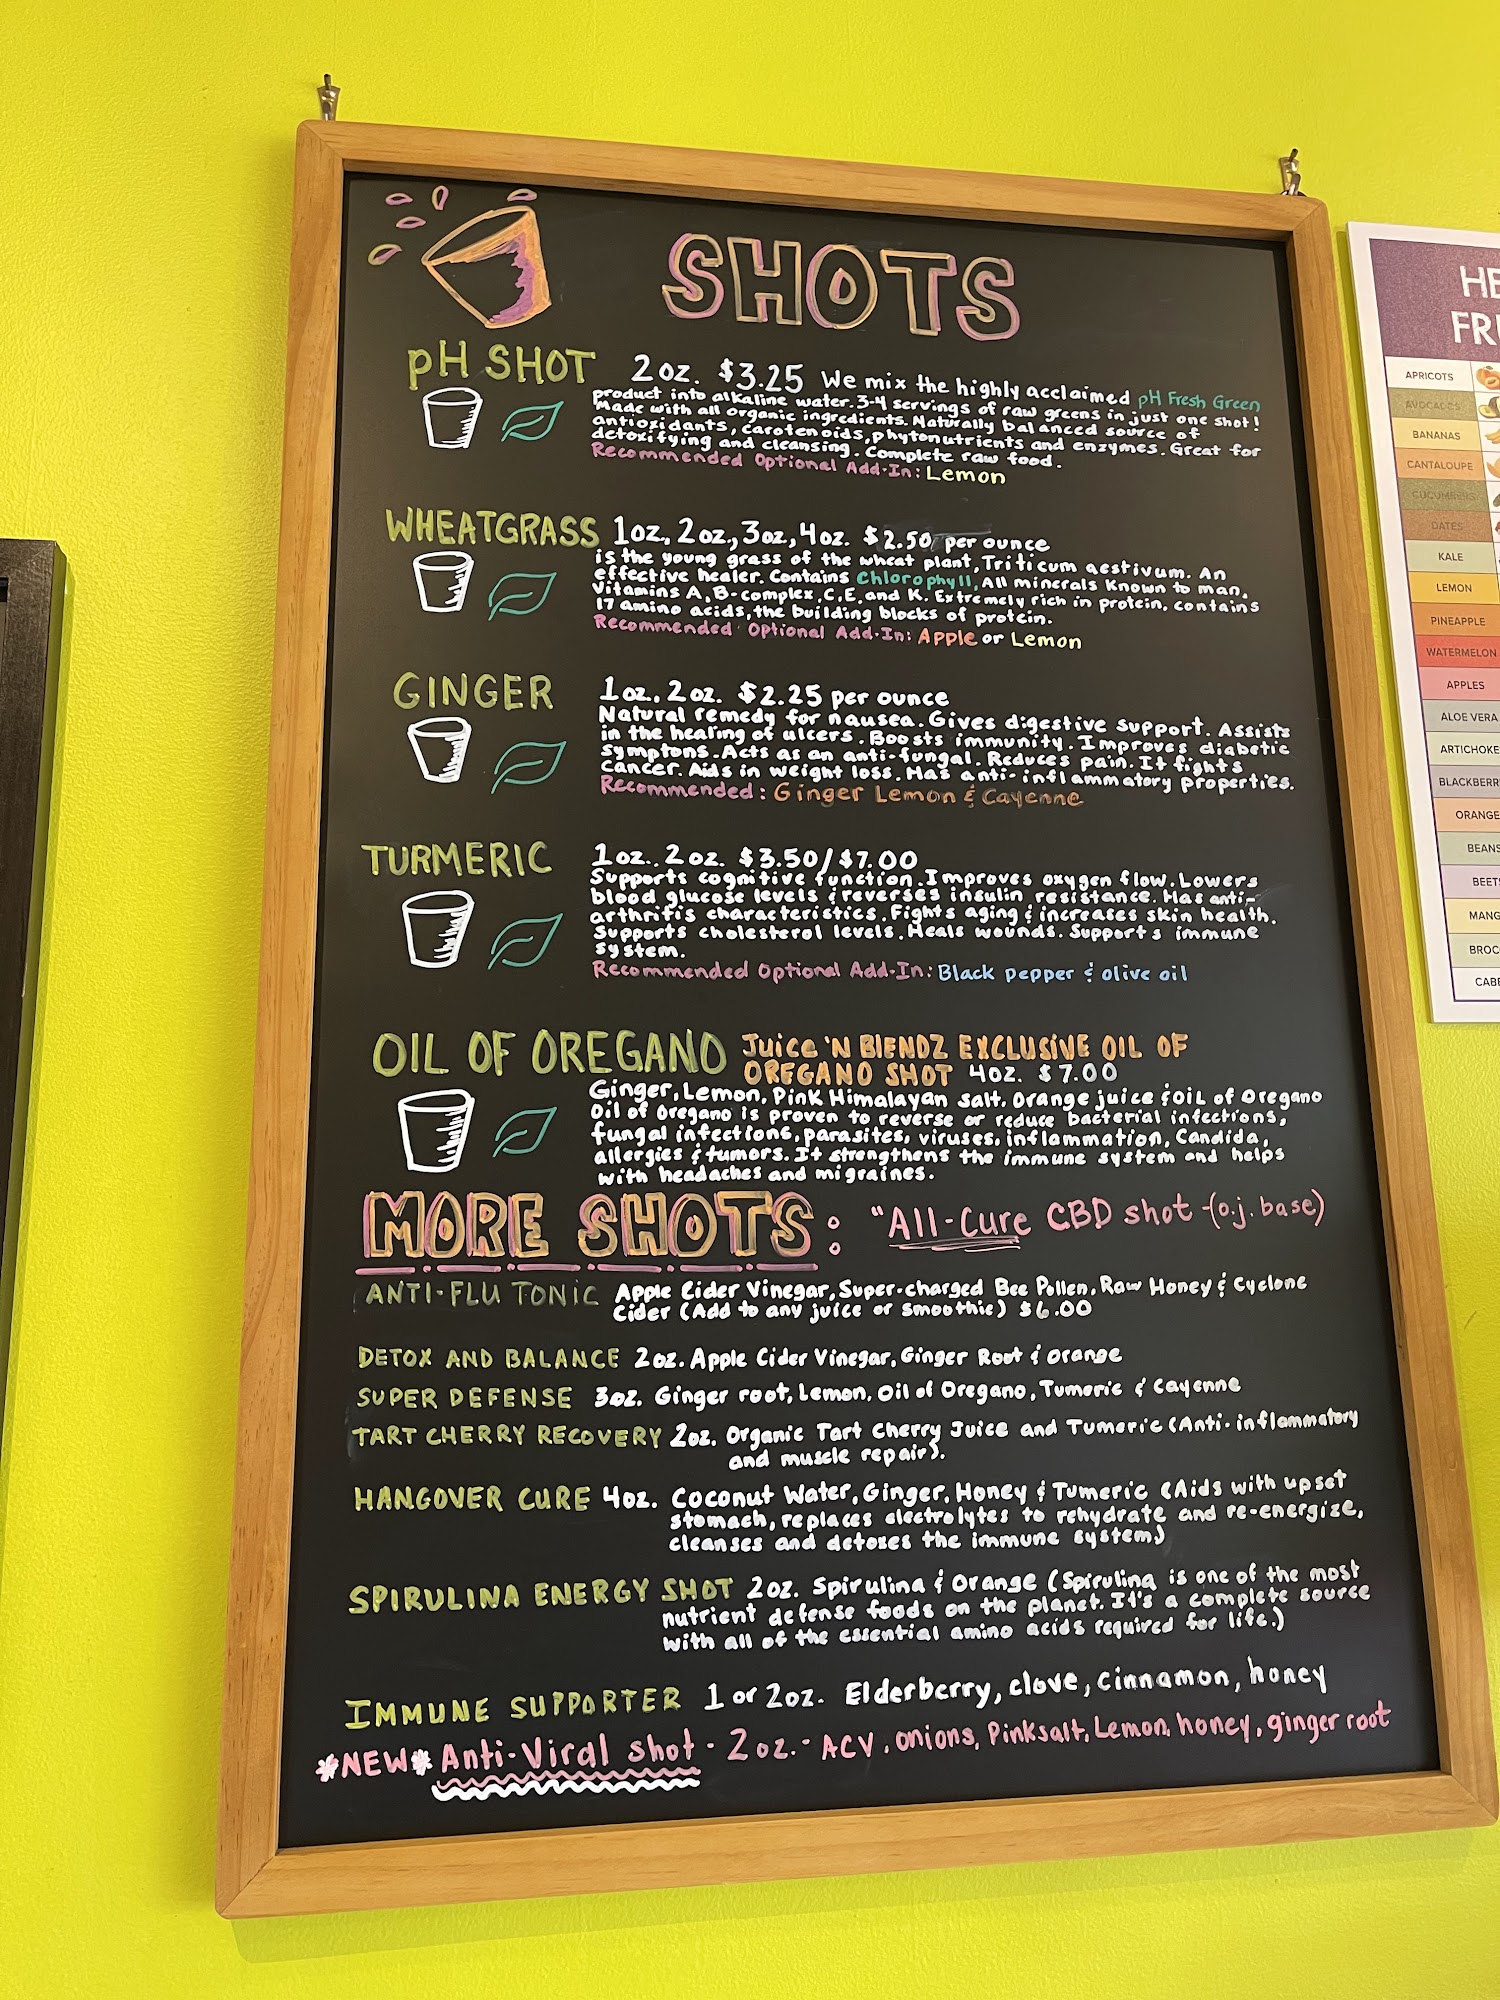 SHOTS
pH SHOT 2oz. $3.25 We mix the highly acclaimed pH Fresh Green
product into alkaline water. 3-4 servings of raw greens in just one shot!
Made with all organic ingredients. Naturally balanced source of
antioxidants, carotenoids, phytonutrients and enzymes. Great for
detoxifying and cleansing. Complete raw food.
Recommended Optional Add-In: Lemon
WHEATGRASS 1oz, 2oz, 3oz, 4oz. $2.50 per ounce
is the young grass of the wheat plant, Triticum aestivum. An
effective healer. Contains Chlorophyll, All minerals Known to man.
Vitamins A, B-complex, C, E, and K. Extremely rich in protein, contains
17 amino acids, the building blocks of protein.
Recommended Optional Add-In: Apple or Lemon
GINGER 1oz, 2oz. $2.25 per ounce
Natural remedy for nausea. Gives digestive support. Assists
in the healing of ulcers. Boosts immunity. Improves diabetic
symptons. Acts as an anti-fungal. Reduces pain. It fights
cancer. Aids in weight loss. Has anti-inflammatory properties.
Recommended: Ginger Lemon & Cayenne
TURMERIC 1oz., 2oz. $3.50/$7.00
Supports cognitive function. Improves oxygen flow. Lowers
blood glucose levels & reverses insulin resistance. Has anti-
arthritis characteristics. Fights aging & increases skin health.
Supports cholesterol levels. Heals wounds. Supports immune
system.
Recommended Optional Add-In: Black pepper & olive oil
OIL OF OREGANO Juice 'N BlENDZ EXCLUSIVE OIL OF
OREGANO SHOT 4oz. $7.00
Ginger, Lemon, Pink Himalayan salt, Orange juice & OIL of Oregano
Oil of Oregano is proven to reverse or reduce bacterial infections,
fungal infections, parasites, viruses, inflammation, Candida,
allergies & tumors. It strengthens the immune system and helps
with headaches and migraines.
MORE SHOTS: "All-Cure CBD shot-(o.j. base)
ANTI-FLU TONIC Apple Cider Vinegar, Super-charged Bee Pollen, Raw Honey & Cyclone
Cider (Add to any juice or smoothie) $6.00
DETOX AND BALANCE 2oz. Apple Cider Vinegar, Ginger Root & Orange
SUPER DEFENSE 3oz. Ginger root, Lemon, Oil of Oregano, Tumeric & Cayenne
TART CHERRY RECOVERY 2oz. Organic Tart Cherry Juice and Tumeric (Anti-inflammatory
and muscle repair).
HANGOVER CURE 4oz. Coconut Water, Ginger, Honey & Tumeric (Aids with upset
stomach, replaces electrolytes to rehydrate and re-energize,
cleanses and detoxes the immune system)
SPIRULINA ENERGY SHOT 2oz. Spirulina & Orange (Spirulina is one of the most
nutrient defense foods on the planet. It's a complete source
with all of the essential amino acids required for life.)
IMMUNE SUPPORTER 1 or 2oz. Elderberry, clove, cinnamon, honey
*NEW* Anti-Viral shot - 2oz.- ACV, onions, Pinksalt, Lemon, honey, ginger root
APRICOTS
AVOCADOS
BANANAS
CANTALOUPE
CUCUMBERS
DATES
KALE
LEMON
PINEAPPLE
WATERMELON
APPLES
ALOE VERA